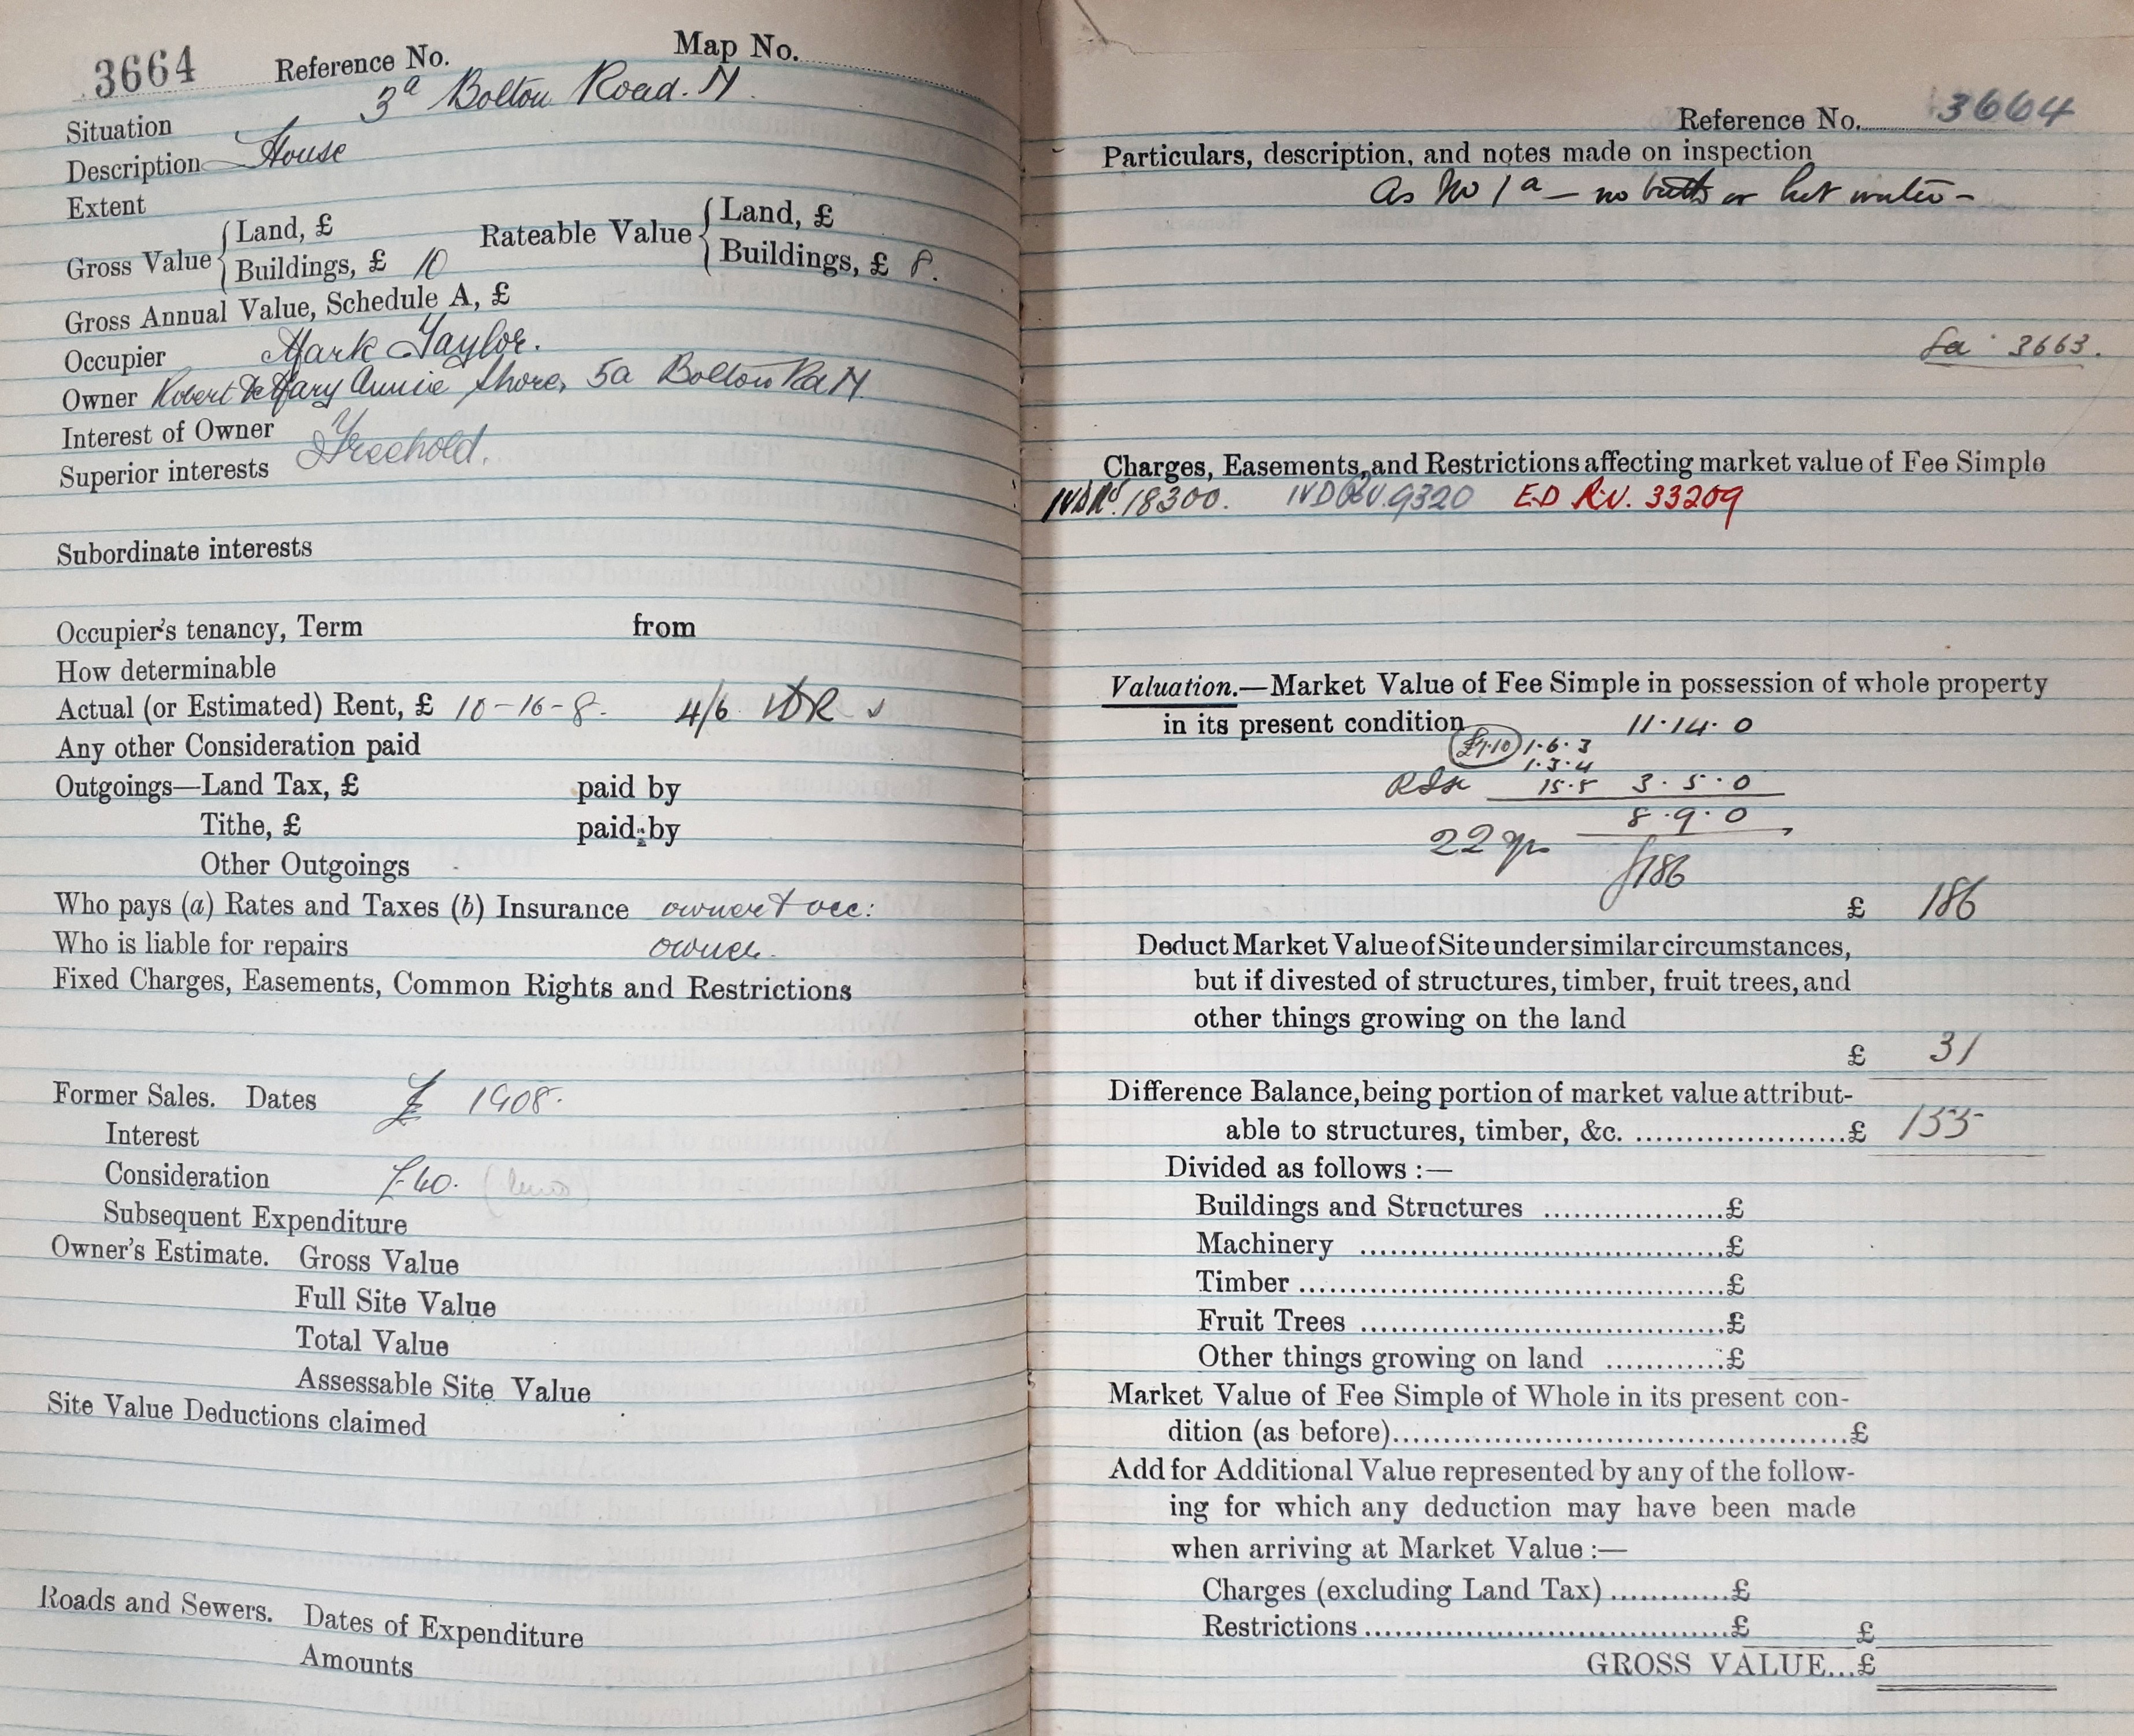 3664 Reference No. Map No.
Situation 3a Bolton Road. M.
Description House
Extent
Gross Value { Land, £ Rateable Value { Land, £
Buildings, £ 10 Buildings, £ 8.
Gross Annual Value, Schedule A, £
Occupier Mark Taylor.
Owner Robert & Mary Annie Shore, 5a Bolton Rd M.
Interest of Owner
Superior interests Freehold.
Subordinate interests
Occupier's tenancy, Term from
How determinable
Actual (or Estimated) Rent, £ 10-16-8. 4/6
Any other Consideration paid
Outgoings—Land Tax, £ paid by
Tithe, £ paid by
Other Outgoings
Who pays (a) Rates and Taxes (b) Insurance owner & occ:
Who is liable for repairs owner.
Fixed Charges, Easements, Common Rights and Restrictions
Former Sales. Dates 1908.
Interest
Consideration £40.
Subsequent Expenditure
Owner's Estimate. Gross Value
Full Site Value
Total Value
Assessable Site Value
Site Value Deductions claimed
Roads and Sewers. Dates of Expenditure
Amounts
Reference No. 3664
Particulars, description, and notes made on inspection
As No 1a — no bath or hot water -
3663.
Charges, Easements, and Restrictions affecting market value of Fee Simple
18300. 9320 ED R.V. 33209
Valuation.—Market Value of Fee Simple in possession of whole property
in its present condition 11.14.0
1.6.3
1.3.4
15.5 3.5.0
8.9.0
22 yrs
£186
£ 186
Deduct Market Value of Site under similar circumstances,
but if divested of structures, timber, fruit trees, and
other things growing on the land
£ 31
Difference Balance, being portion of market value attribut-
able to structures, timber, &c. ......................£ 155
Divided as follows :—
Buildings and Structures ...................£
Machinery ......................................£
Timber .............................................£
Fruit Trees ......................................£
Other things growing on land ............£
Market Value of Fee Simple of Whole in its present con-
dition (as before)................................................£
Add for Additional Value represented by any of the follow-
ing for which any deduction may have been made
when arriving at Market Value :—
Charges (excluding Land Tax) ............£
Restrictions ......................................£ £
GROSS VALUE...£